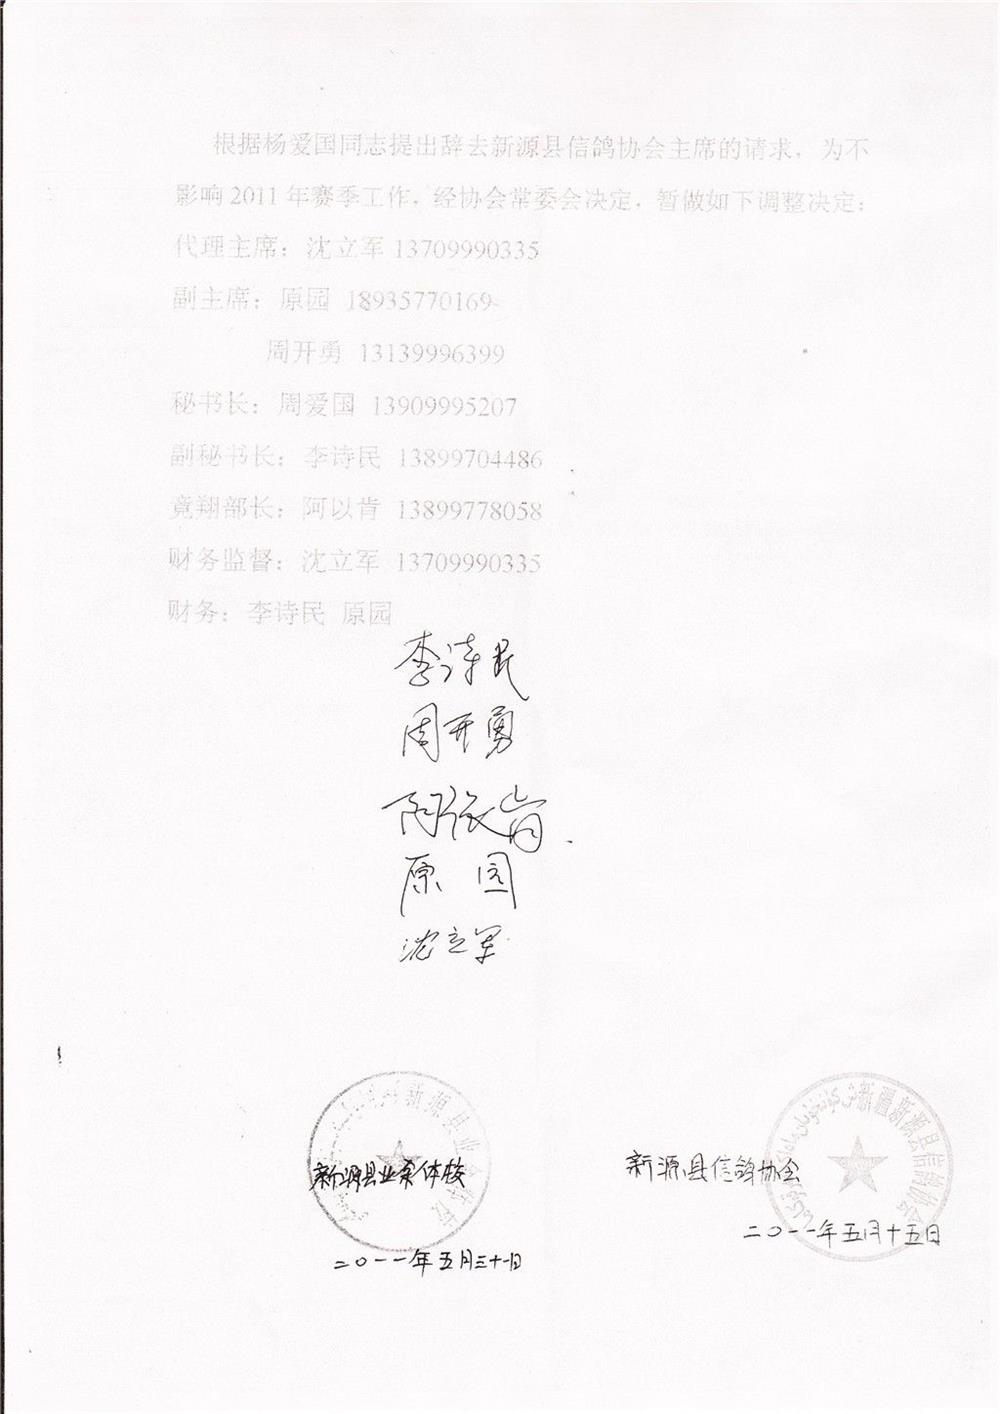 根据杨爱国同志提出辞去新源县信鸽协会主席的请求，为不
影响2011年赛季工作，经协会常委会决定，暂做如下调整决定：
代理主席：沈立军 13709990335
副主席：原园 18935770169
周开勇 13139996399
秘书长：周爱国 13909995207
副秘书长：李诗民 13899704486
竟翔部长：阿以肯 13899778058
财务监督：沈立军 13709990335
财务：李诗民 原园
李诗民
周开勇
阿依肯
原园
沈立军
新源县业余体校
新源县业余体校
二〇一一年五月三十一日
新疆新源县信鸽协会
新源县信鸽协会
二〇一一年五月十五日